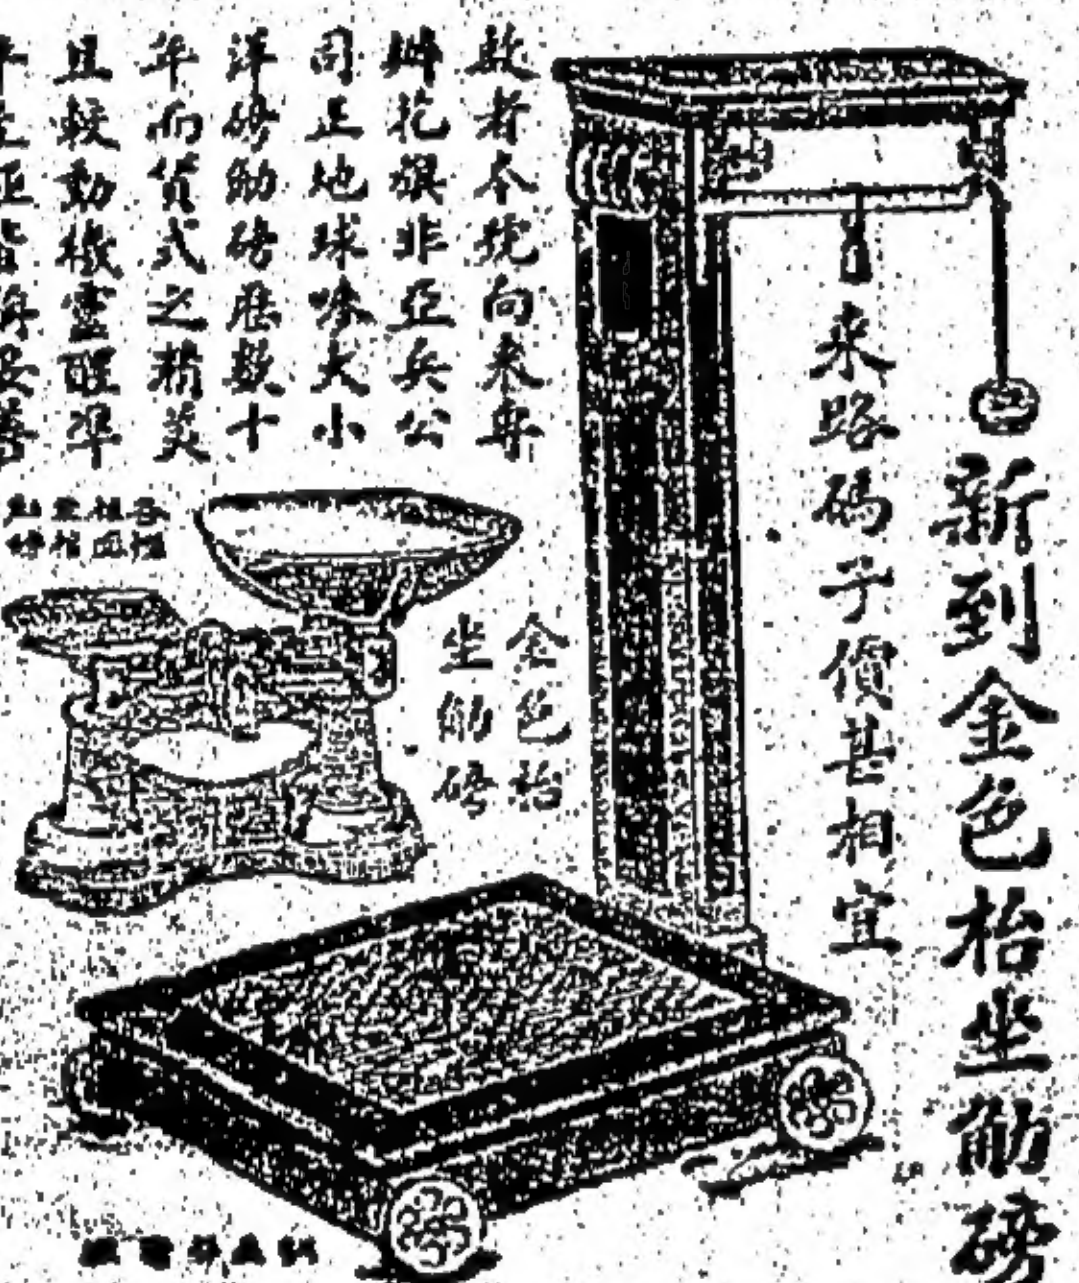 新到金色枱坐觔磅
来路碼子價甚相宜
啟者本號向来專
辦花旗非亞兵公
司正地球嘜大小
洋磅觔磅歷數十
年而貨式之精美
且較動機靈醒準
金色枱
坐觔磅